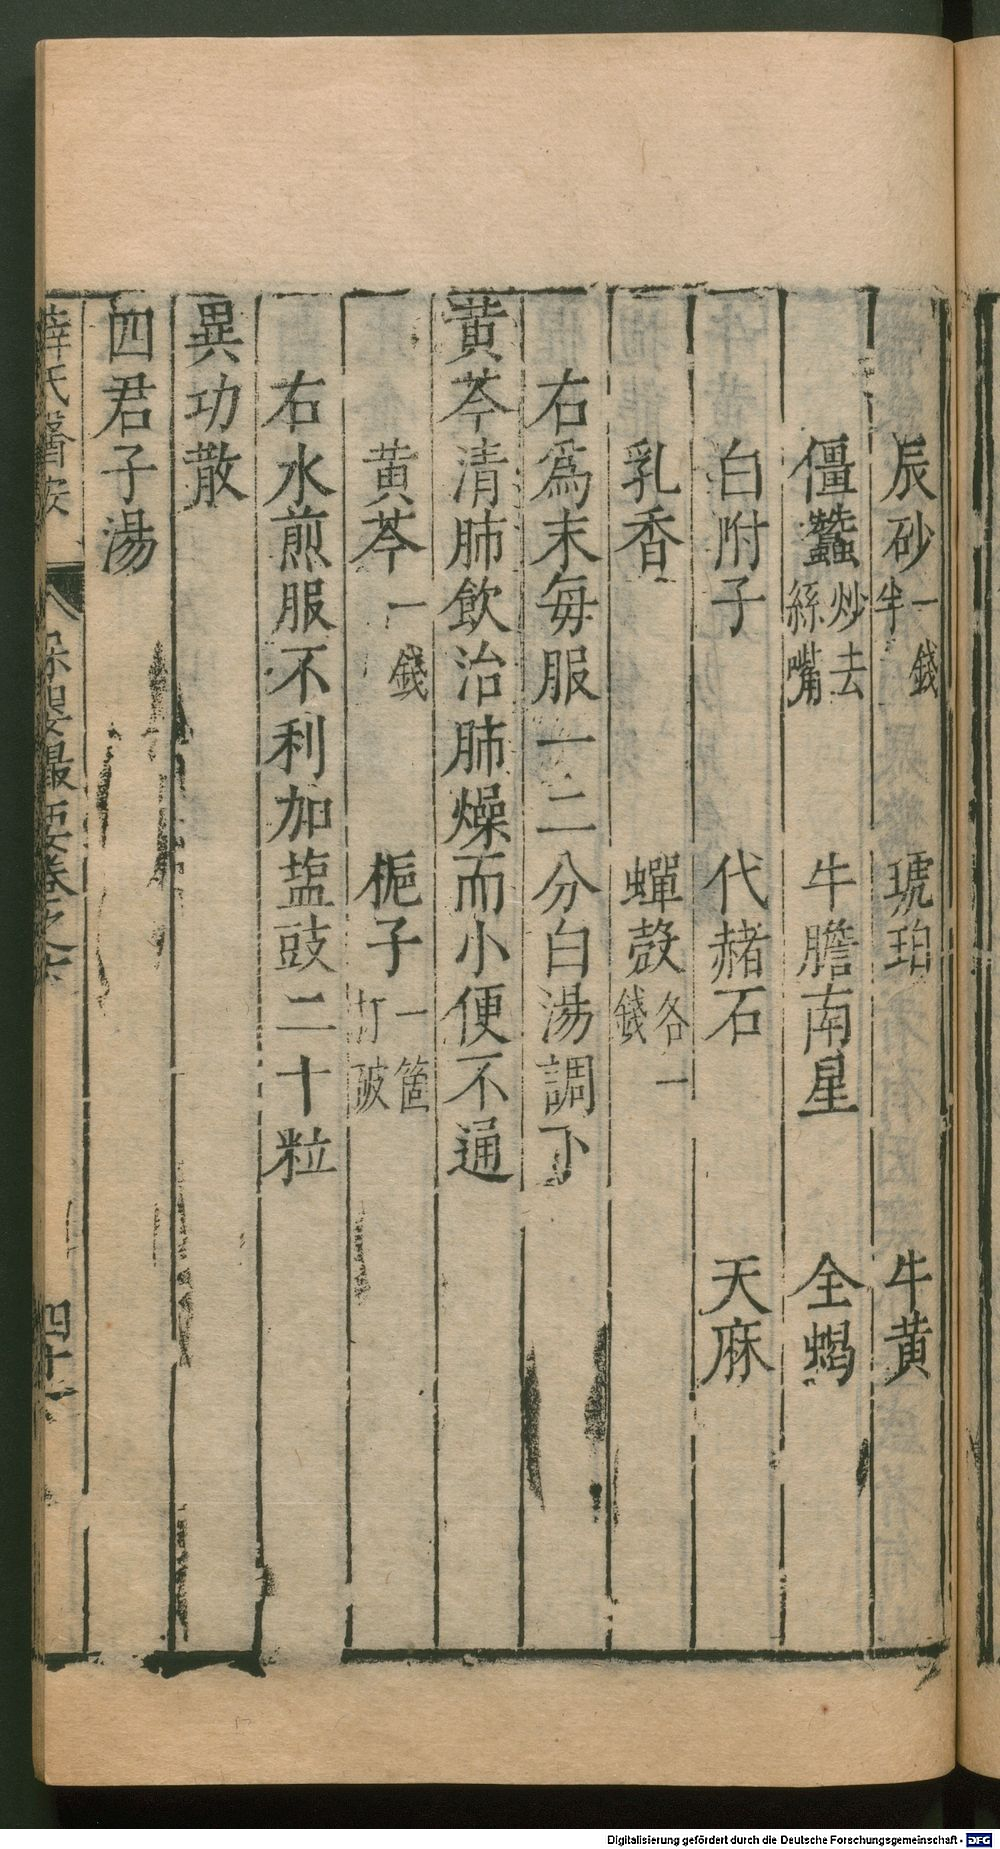 辰砂一錢半 琥珀 牛黄
僵蠶炒去絲嘴 牛膽南星 全蝎
白附子 代赭石 天麻
乳香 蟬殻各一錢
右爲末每服一二分白湯調下
黄芩清肺飲治肺燥而小便不通
黄芩一錢 梔子一箇打破
右水煎服不利加塩豉二十粒
異功散
四君子湯
薛氏醫案 保嬰撮要卷之 四十
Digitalisierung gefördert durch die Deutsche Forschungsgemeinschaft - DFG